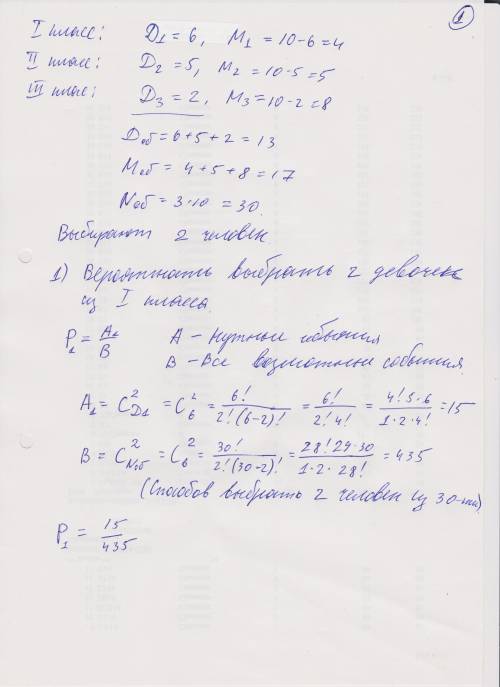 1
I класс: Д1 = 6, М1 = 10-6=4
II класс: Д2 = 5, М2 = 10-5=5
III класс: Д3 = 2, М3 = 10-2=8
Доб = 6+5+2 = 13
Моб = 4+5+8 = 17
Nоб = 3·10 = 30.
Выбирают 2 человек
1) Вероятность выбрать 2 девочек
из I класса
P1 = A1/B A - нужные события
B - Все возможные события.
A1 = C²Д1 = C²6 = 6!/2!(6-2)! = 6!/2!4! = 4!5·6/1·2·4! = 15
B = C²Nоб = C²6 = 30!/2!(30-2)! = 28!29·30/1·2·28! = 435
(Способов выбрать 2 человек из 30-ти)
P1 = 15/435